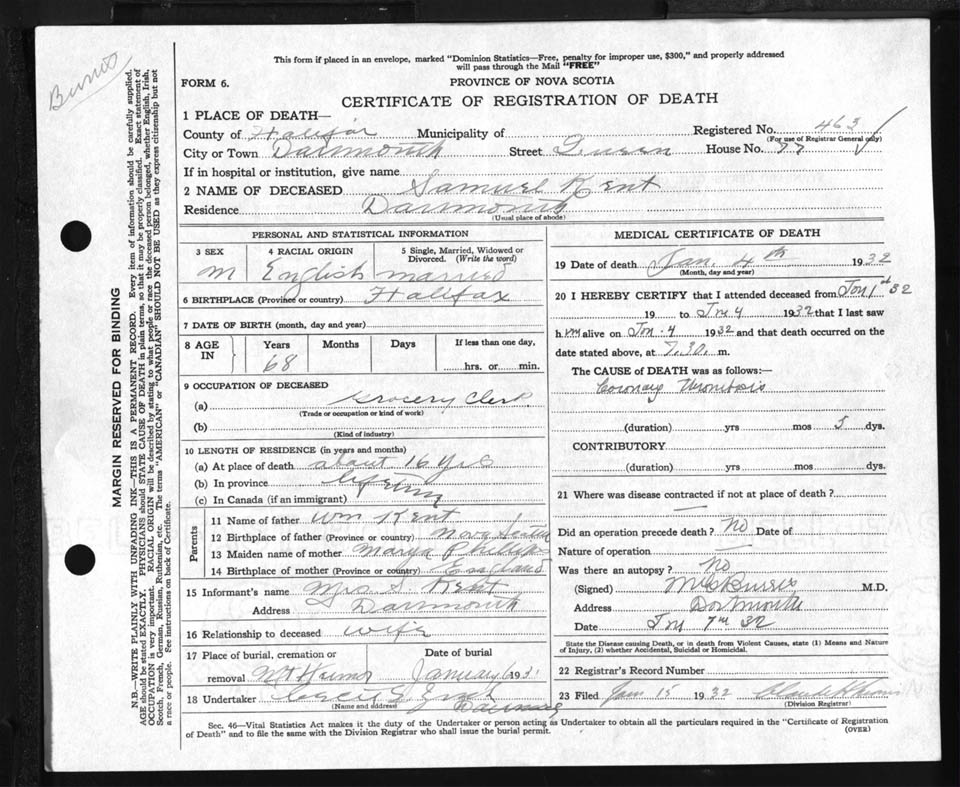 Burris
This form if placed in an envelope, marked "Dominion Statistics—Free, penalty for improper use, $300," and properly addressed
will pass through the Mail "FREE"
FORM 6. PROVINCE OF NOVA SCOTIA
CERTIFICATE OF REGISTRATION OF DEATH
MARGIN RESERVED FOR BINDING
N.B.—WRITE PLAINLY WITH UNFADING INK—THIS IS A PERMANENT RECORD. Every item of information should be carefully supplied.
AGE should be stated EXACTLY. PHYSICIANS should STATE CAUSE OF DEATH in plain terms, so that it may be properly classified. Exact statement of
OCCUPATION is very important. RACIAL ORIGIN will be described by stating to what people or race the deceased person belonged, whether English, Irish,
Scotch, French, German, Russian, Ruthenian, etc. The terms "AMERICAN" or "CANADIAN" SHOULD NOT BE USED as they express citizenship but not
a race or people. See instructions on back of Certificate.
1 PLACE OF DEATH—
County of Halifax Municipality of Registered No. 463
(For use of Registrar General only)
City or Town Darmouth Street Queen House No. 77
If in hospital or institution, give name
2 NAME OF DECEASED Samuel Kent
Residence Darmouth
(Usual place of abode)
PERSONAL AND STATISTICAL INFORMATION
3 SEX 4 RACIAL ORIGIN 5 Single, Married, Widowed or
Divorced. (Write the word)
M English married
6 BIRTHPLACE (Province or country) Halifax
7 DATE OF BIRTH (month, day and year)
8 AGE IN Years Months Days If less than one day,
68 hrs. or min.
9 OCCUPATION OF DECEASED
(a) Grocery Clerk
(Trade or occupation or kind of work)
(b)
(Kind of industry)
10 LENGTH OF RESIDENCE (in years and months)
(a) At place of death about 16 yrs
(b) In province lifetime
(c) In Canada (if an immigrant)
Parents
11 Name of father Wm Kent
12 Birthplace of father (Province or country) Nova Scotia
13 Maiden name of mother Phillips
14 Birthplace of mother (Province or country) England
15 Informant's name Mrs S Kent
Address Darmouth
16 Relationship to deceased wife
17 Place of burial, cremation or removal Date of burial
January 6 193
18 Undertaker
(Name and address)
MEDICAL CERTIFICATE OF DEATH
19 Date of death Jan. 4th 1932
(Month, day and year)
20 I HEREBY CERTIFY that I attended deceased from Jan 1st 32
19 to Jan 4 1932 that I last saw
him alive on Jan 4 1932 and that death occurred on
date stated above, at 7.30 m.
The CAUSE of DEATH was as follows:—
Coronary Thrombosis
(duration) yrs mos 5 dys.
CONTRIBUTORY
(duration) yrs. mos. dys.
21 Where was disease contracted if not at place of death?
Did an operation precede death? No Date of
Nature of operation
Was there an autopsy? No
(Signed) Burris M.D.
Address Dartmouth
Date Jan 7th 32
State the Disease causing Death, or in death from Violent Causes, state (1) Means and Nature
of Injury, (2) whether Accidental, Suicidal or Homicidal.
22 Registrar's Record Number
23 Filed Jan 15 1932
(Division Registrar)
Sec. 46—Vital Statistics Act makes it the duty of the Undertaker or person acting as Undertaker to obtain all the particulars required in the "Certificate of Registration
of Death" and to file the same with the Division Registrar who shall issue the burial permit. (OVER)